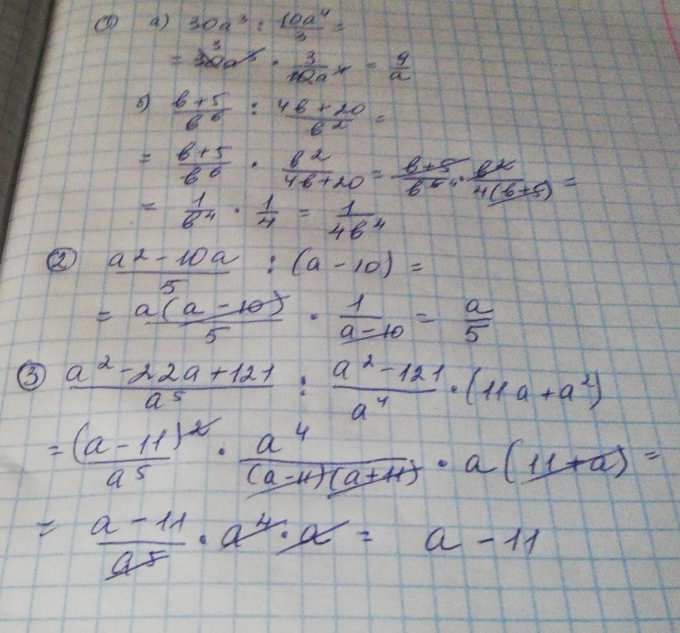 ① а) 30a³ : 10a⁴/3 =
= 30a³ ³ · 3/10a⁴ = 9/a
б) (b+5)/b⁶ : (4b+20)/b² =
= (b+5)/b⁶ · b²/(4b+20) = (b+5)/b⁶ ⁴ · b²/4(b+5) =
= 1/b⁴ · 1/4 = 1/4b⁴
② (a²-10a)/5 : (a-10) =
= a(a-10)/5 · 1/(a-10) = a/5
③ (a²-22a+121)/a⁵ : (a²-121)/a⁴ · (11a+a²)
= (a-11)²/a⁵ · a⁴/(a-11)(a+11) · a(11+a) =
= (a-11)/a⁵ · a⁴ · a = a-11